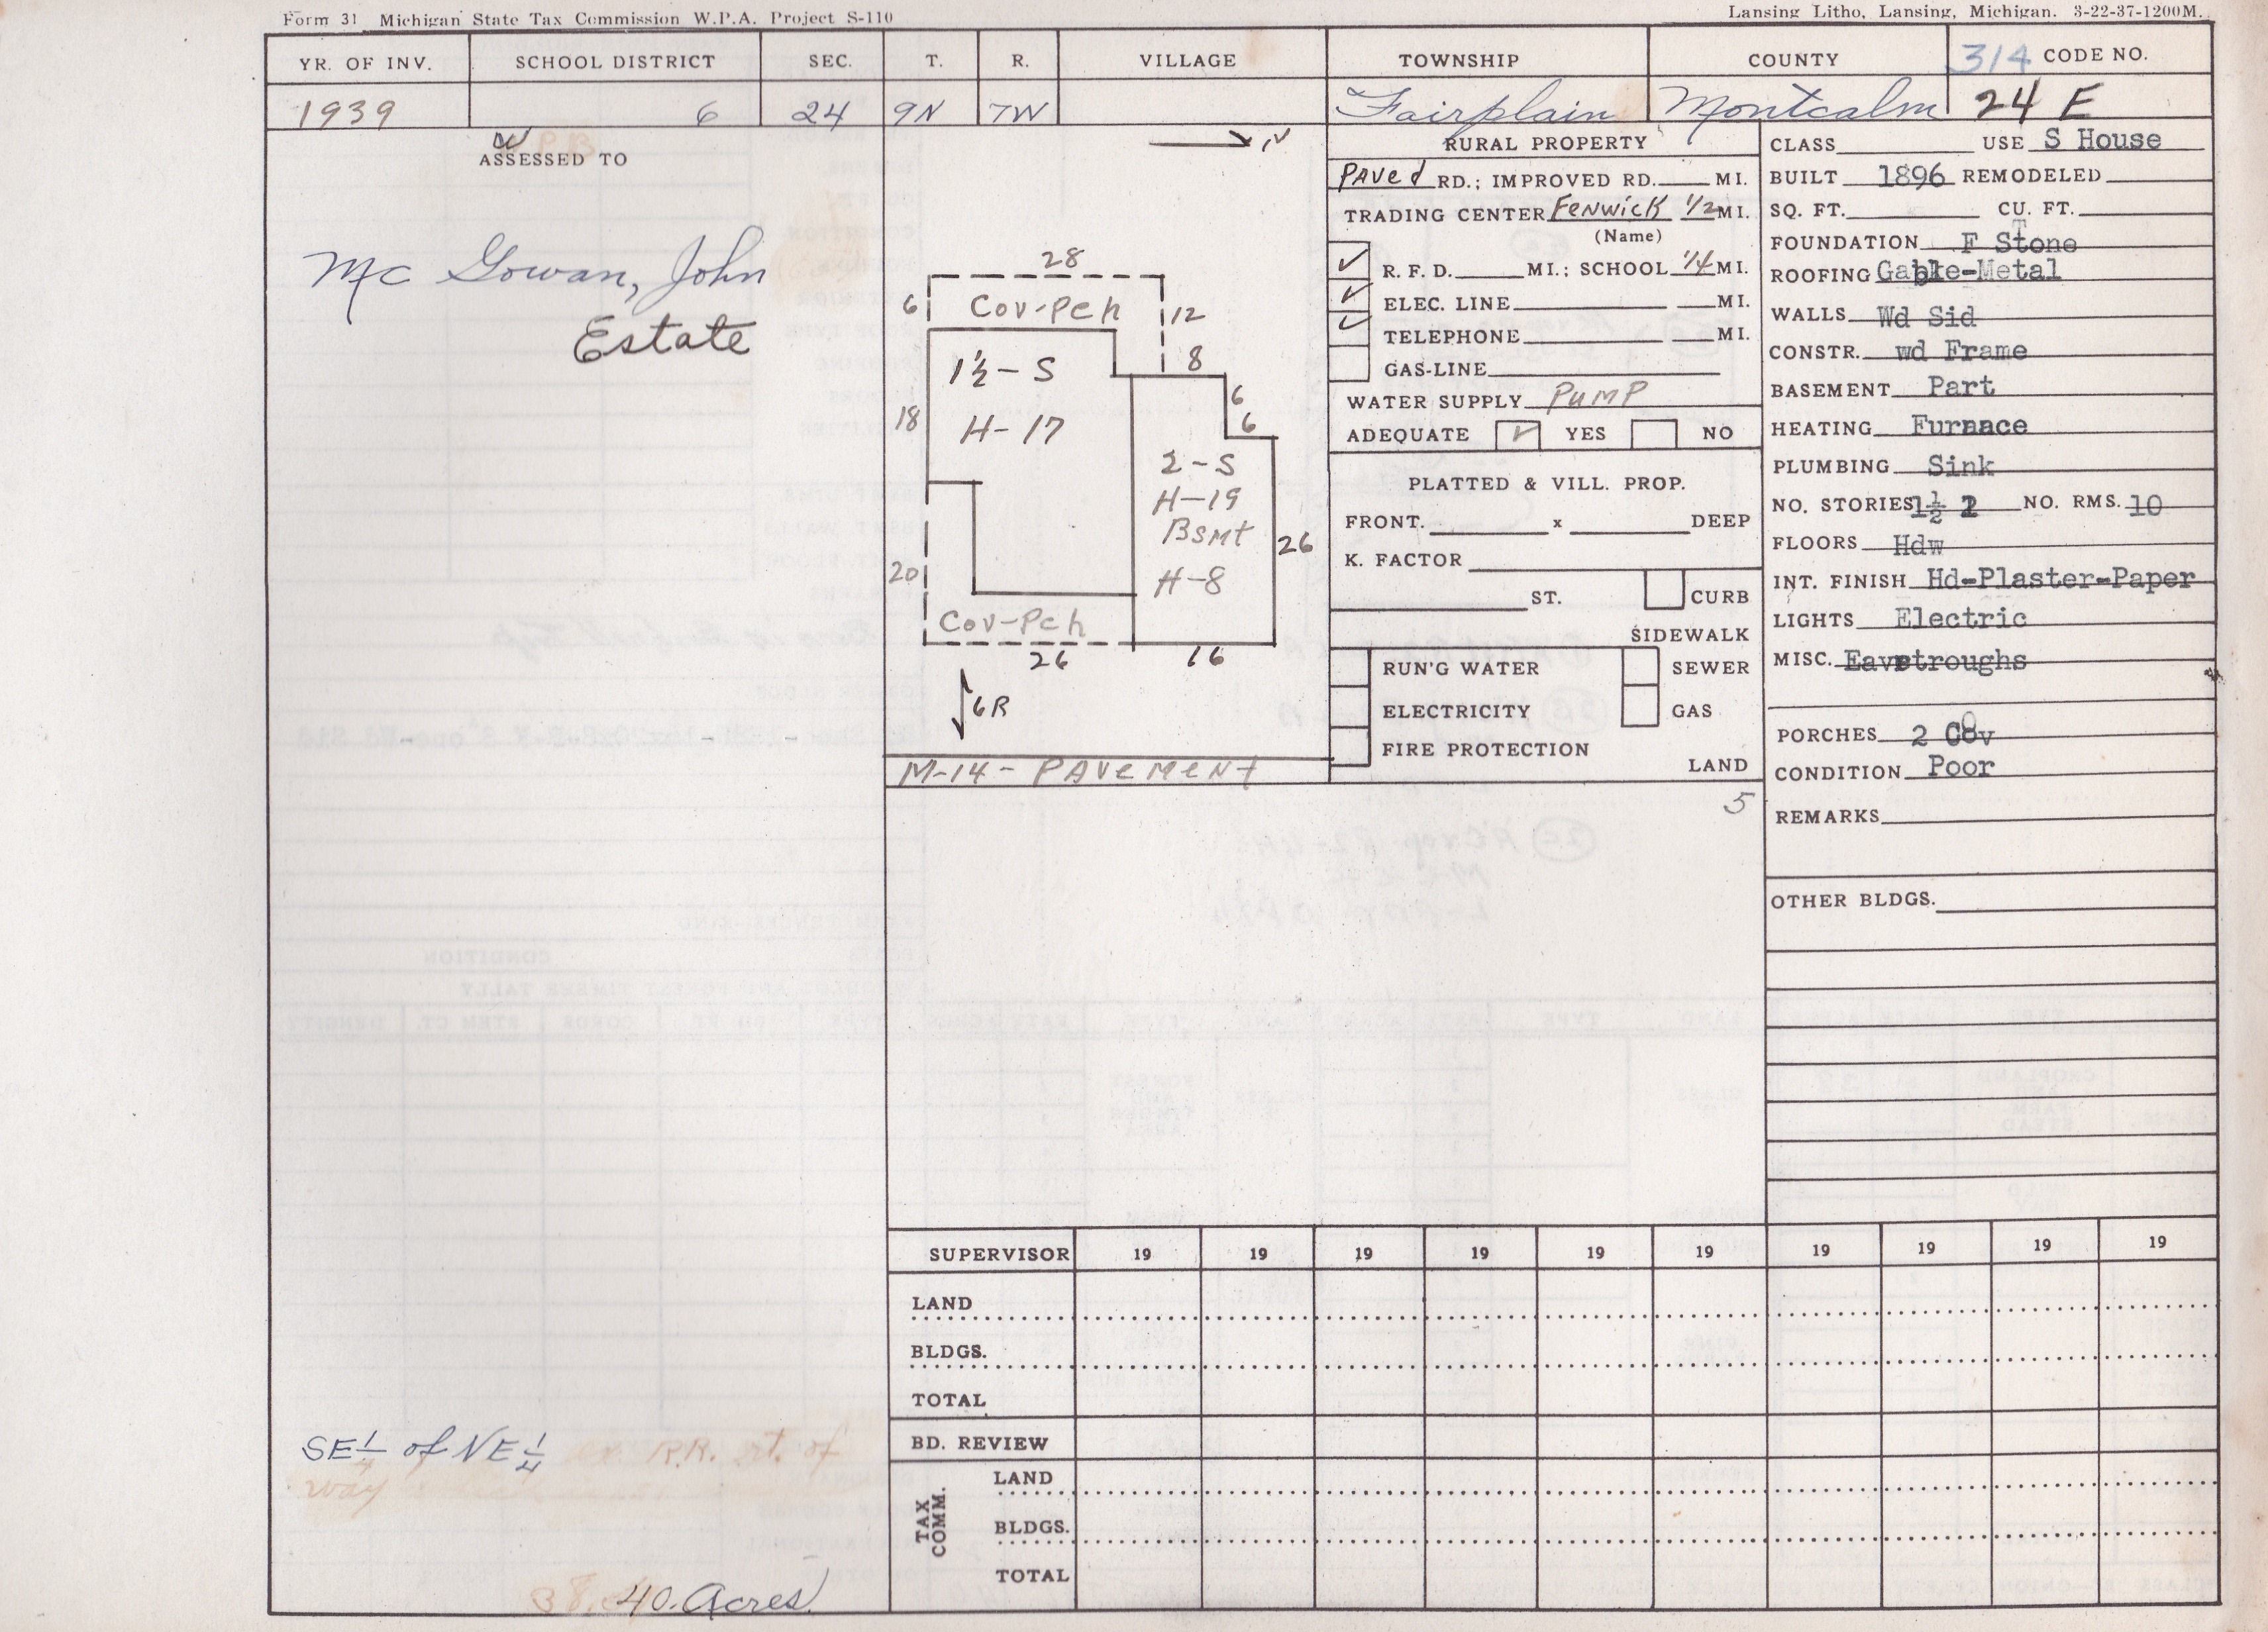 Form 31 Michigan State Tax Commission W.P.A. Project S-110
Lansing Litho, Lansing, Michigan. 3-22-37-1200M.
YR. OF INV. SCHOOL DISTRICT SEC. T. R. VILLAGE TOWNSHIP COUNTY 314 CODE NO.
1939 6 24 9N 7W Fairplain Montcalm 24 E
ASSESSED TO
Mc Gowan, John
Estate
SE 1/4 of NE 1/4 ex. R.R. rt. of
way
40. Acres
N
28
6 Cov-Pch 12
1½-S 8
18 H-17 6
6
2-S
H-19
Bsmt 26
20 H-8
Cov-Pch
26 16
6R
M-14-PAVEMENT
RURAL PROPERTY
PAVed RD.; IMPROVED RD. MI.
TRADING CENTER FeNwick 1/2 MI.
(Name)
✓ R. F. D. MI.; SCHOOL 1/4 MI.
✓ ELEC. LINE MI.
✓ TELEPHONE MI.
GAS-LINE
WATER SUPPLY PUMP
ADEQUATE ✓ YES NO
PLATTED & VILL. PROP.
FRONT. x DEEP
K. FACTOR
ST. CURB
SIDEWALK
RUN'G WATER SEWER
ELECTRICITY GAS
FIRE PROTECTION
LAND
5
CLASS USE S House
BUILT 1896 REMODELED
SQ. FT. CU. FT.
FOUNDATION F Stone
ROOFING Gable-Metal
WALLS Wd Sid
CONSTR. wd Frame
BASEMENT Part
HEATING Furnace
PLUMBING Sink
NO. STORIES 1½ 2 NO. RMS. 10
FLOORS Hdw
INT. FINISH Hd-Plaster-Paper
LIGHTS Electric
MISC. Eavetroughs
PORCHES 2 Cov
CONDITION Poor
REMARKS
OTHER BLDGS.
SUPERVISOR 19 19 19 19 19 19 19 19 19 19
LAND
BLDGS.
TOTAL
BD. REVIEW
TAX COMM.
LAND
BLDGS.
TOTAL